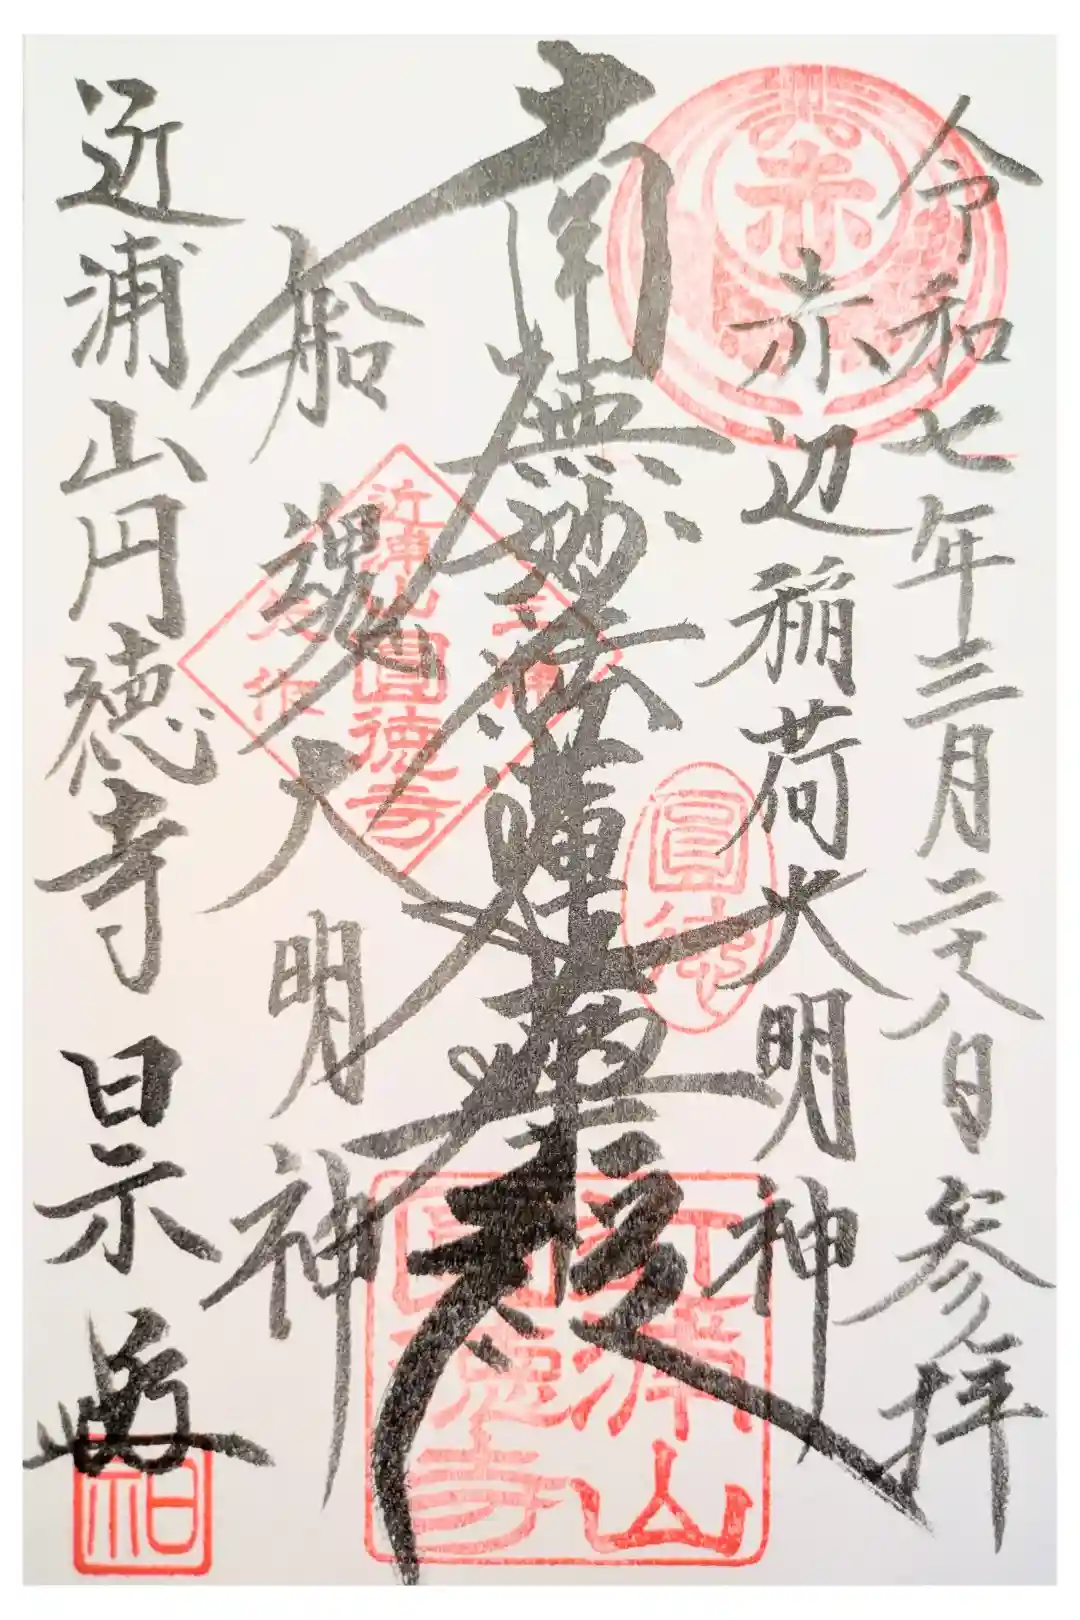 令和七年三月二十八日 参拝
赤
赤辺稲荷大明神
圓徳
南無妙法蓮華経
近浦山
圓徳寺
船魂大明神
近浦山圓徳寺
近浦山円徳寺 日示